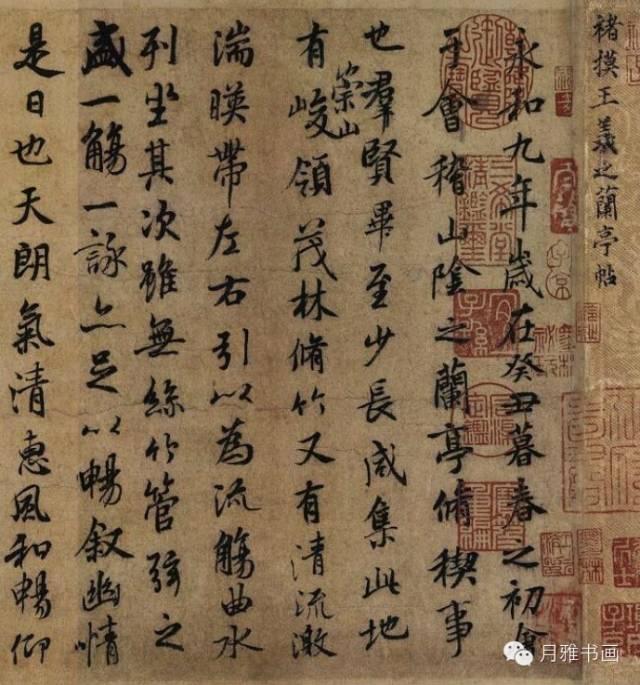 褚摸王羲之蘭亭帖
永和九年歲在癸丑暮春之初會
于會稽山陰之蘭亭脩稧事
也羣賢畢至少長咸集此地
有崇山峻領茂林脩竹又有清流激
湍暎帶左右引以為流觴曲水
列坐其次雖無絲竹管弦之
盛一觴一詠亦足以暢叙幽情
是日也天朗氣清惠風和暢仰
月雅书画